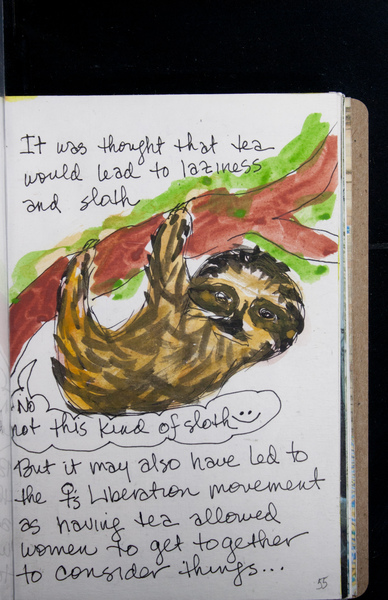 It was thought that tea
would lead to laziness
and sloth
No
not this kind of sloth
But it may also have led to
the ♀'s Liberation movement
as having tea allowed
women to get together
to consider things...
55